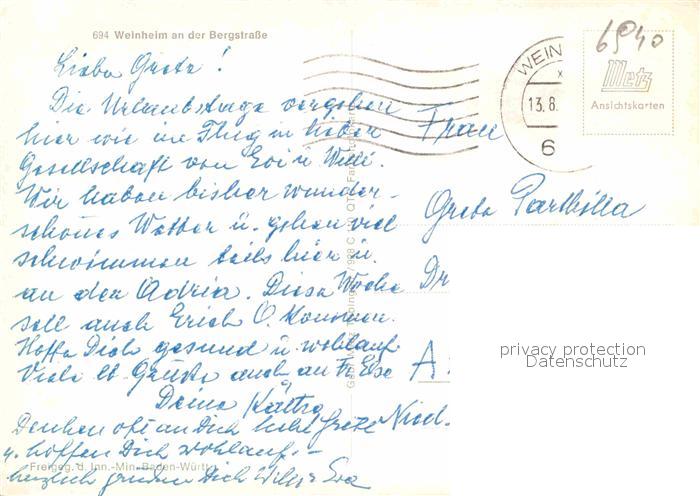 694 Weinheim an der Bergstraße
Liebe Grete!
Die Urlaubstage vergehen
hier wie im Flug in lieber
Gesellschaft von Evi u. Willi.
Wir haben bisher wunder-
schönes Wetter u. gehen viel
schwimmen teils hier u.
an der Adria. Diese Woche
soll auch Erich O. kommen.
Hoffe Dich gesund u. wohlauf
Viele lb. Grüße auch an Fr. Else
Deine Käthe
Denken oft an Dich liebe Grete
u. hoffen Dich wohlauf. -
herzlich grüßen Dich Willi & Eva
Freigeg. d. Inn.-Min. Baden-Württ
WEIN
13.8.
6
6940
Metz
Ansichtskarten
Frau
Grete
Dr
A
Nied.
privacy protection
Datenschutz